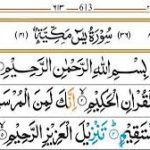 ٦١٣ 613
(٣٦) سُوْرَةُ يٰسٓ مَكِّيَّةٌ (٤١)
بِسْمِ اللّٰهِ الرَّحْمٰنِ الرَّحِيْمِ
لْقُرْاٰنِ الْحَكِيْمِ اِنَّكَ لَمِنَ الْمُرْسَ
سْتَقِيْمٍ تَنْزِيْلَ الْعَزِيْزِ الرَّحِيْمِ